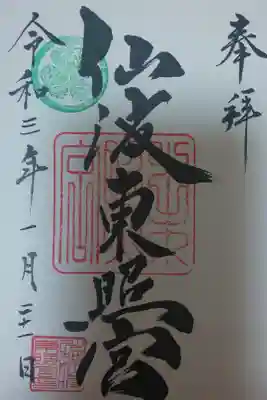 奉拝
仙波東照宮
令和三年一月二十一日